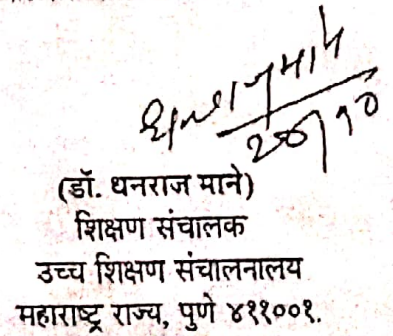 (डॉ. धनराज माने)
शिक्षण संचालक
उच्च शिक्षण संचालनालय
महाराष्ट्र राज्य, पुणे ४११००१.